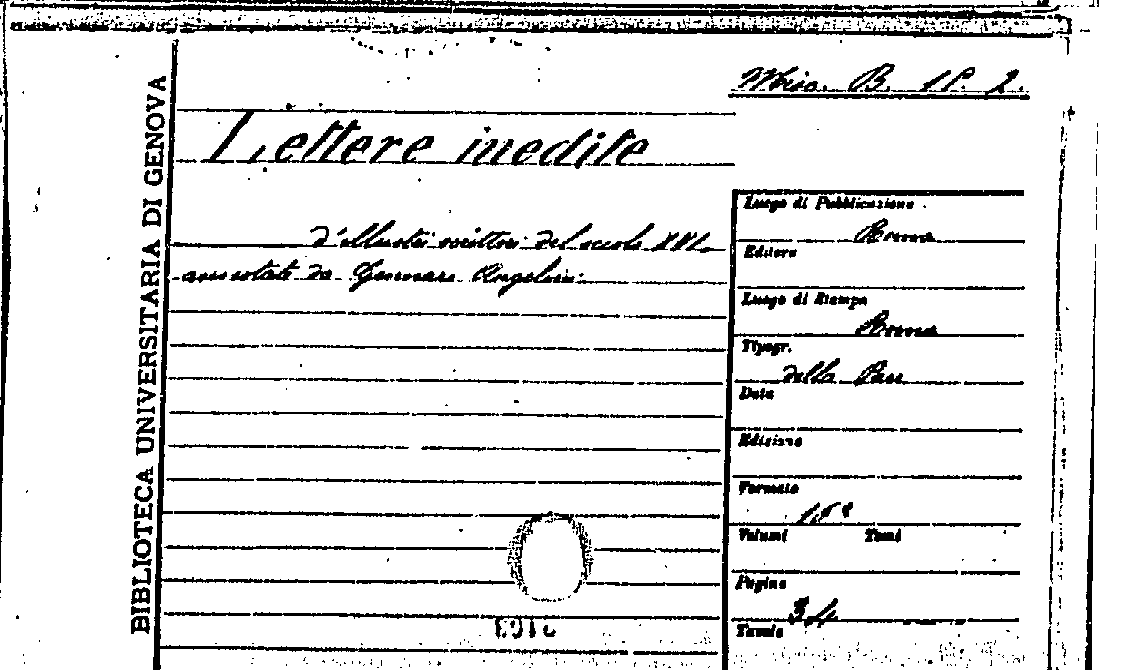 BIBLIOTECA UNIVERSITARIA DI GENOVA
Misc. B. 2.
Lettere inedite
d'illustri scrittori del secolo XVI
annotate da Gennaro Angelini
Luogo di Pubblicazione
Roma
Editore
Luogo di Stampa
Roma
Tipogr.
della Pace
Data
Edizione
Formato
Volumi Tomi
Pagine
34
Tavole